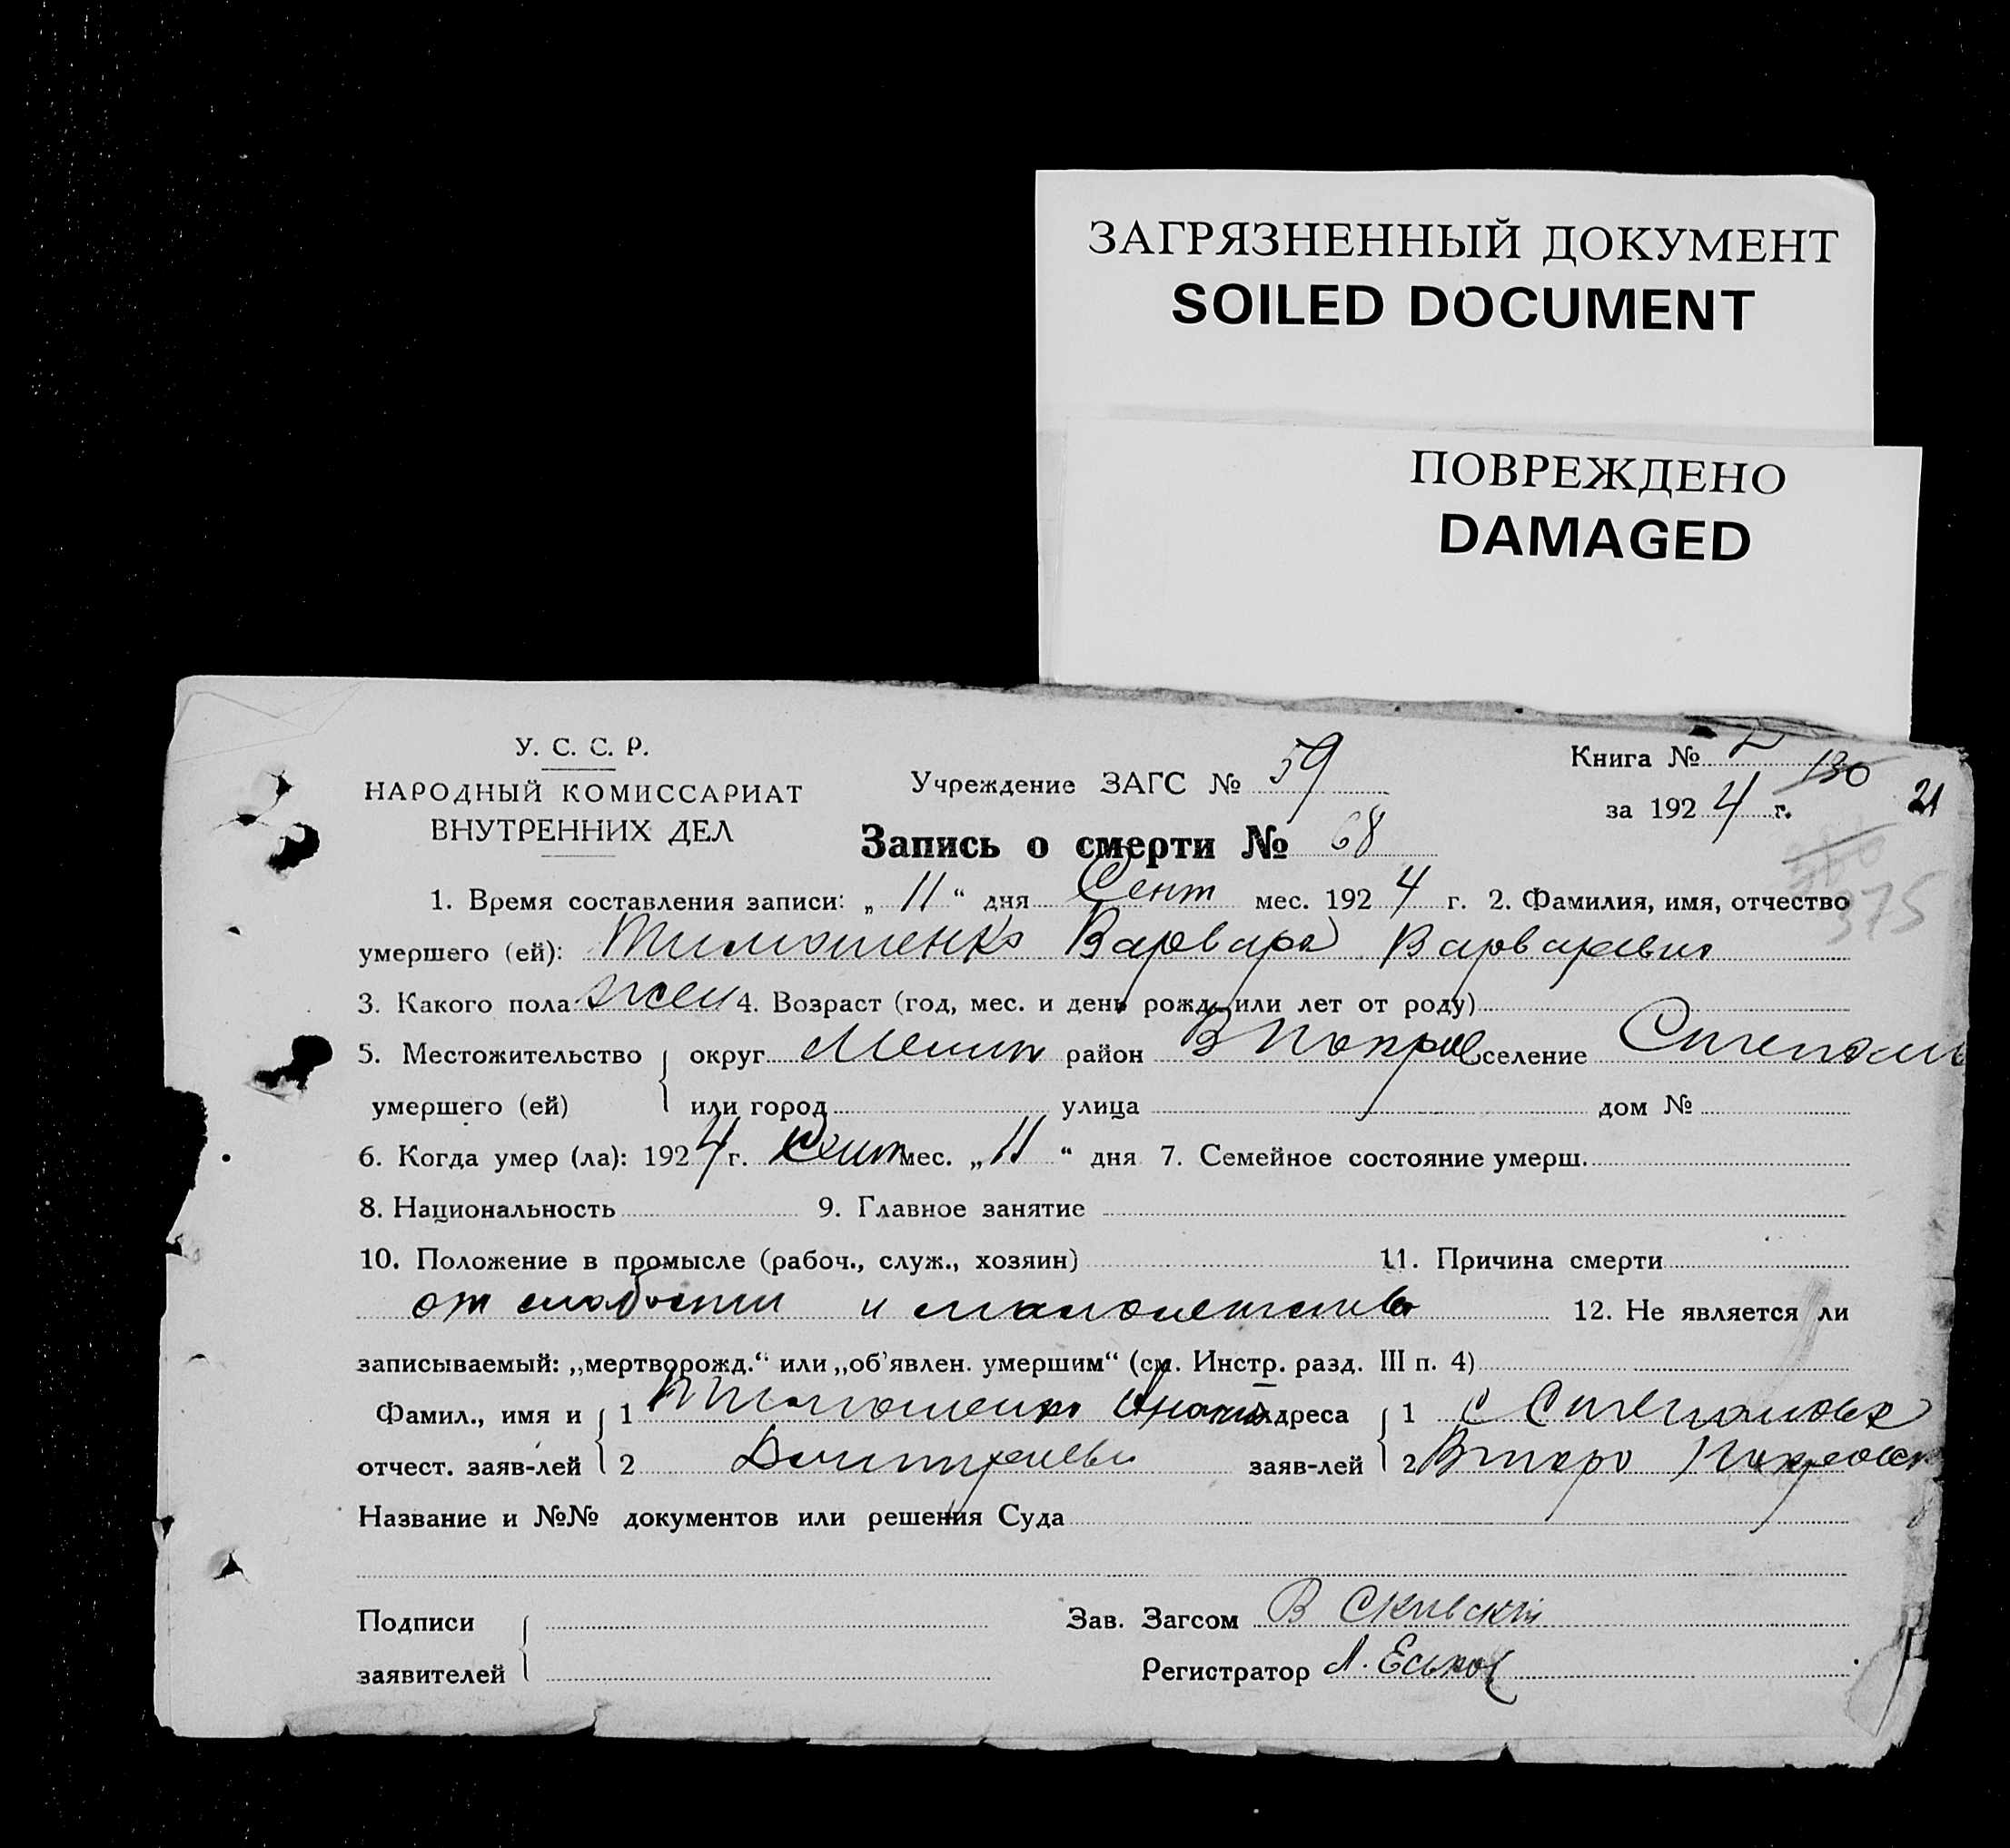 ЗАГРЯЗНЕННЫЙ ДОКУМЕНТ
SOILED DOCUMENT
ПОВРЕЖДЕНО
DAMAGED
У. С. С. Р.
НАРОДНЫЙ КОМИССАРИАТ
ВНУТРЕННИХ ДЕЛ
Учреждение ЗАГС № 59
Книга №
130
за 1924 г.
21
Запись о смерти № 68
375
1. Время составления записи: „ 11 “ дня Сент мес. 1924 г. 2. Фамилия, имя, отчество
умершего (ей): Тимошенко Варвара
3. Какого пола жен 4. Возраст (год, мес. и день рожд. или лет от роду)
5. Местожительство округ район В Покров селение
умершего (ей) или город улица дом №
6. Когда умер (ла): 1924 г. Сент мес. „ 11 “ дня 7. Семейное состояние умерш.
8. Национальность 9. Главное занятие
10. Положение в промысле (рабоч., служ., хозяин) 11. Причина смерти
от слабости и 12. Не является ли
записываемый: „мертворожд.“ или „об’явлен. умершим“ (см. Инстр. разд. III п. 4)
Фамил., имя и 1 Тимошенко Адреса 1 с Степановка
отчест. заяв-лей 2 заяв-лей 2 Второ Покровск
Название и №№ документов или решения Суда
Подписи Зав. Загсом В
заявителей Регистратор Л. Еськов